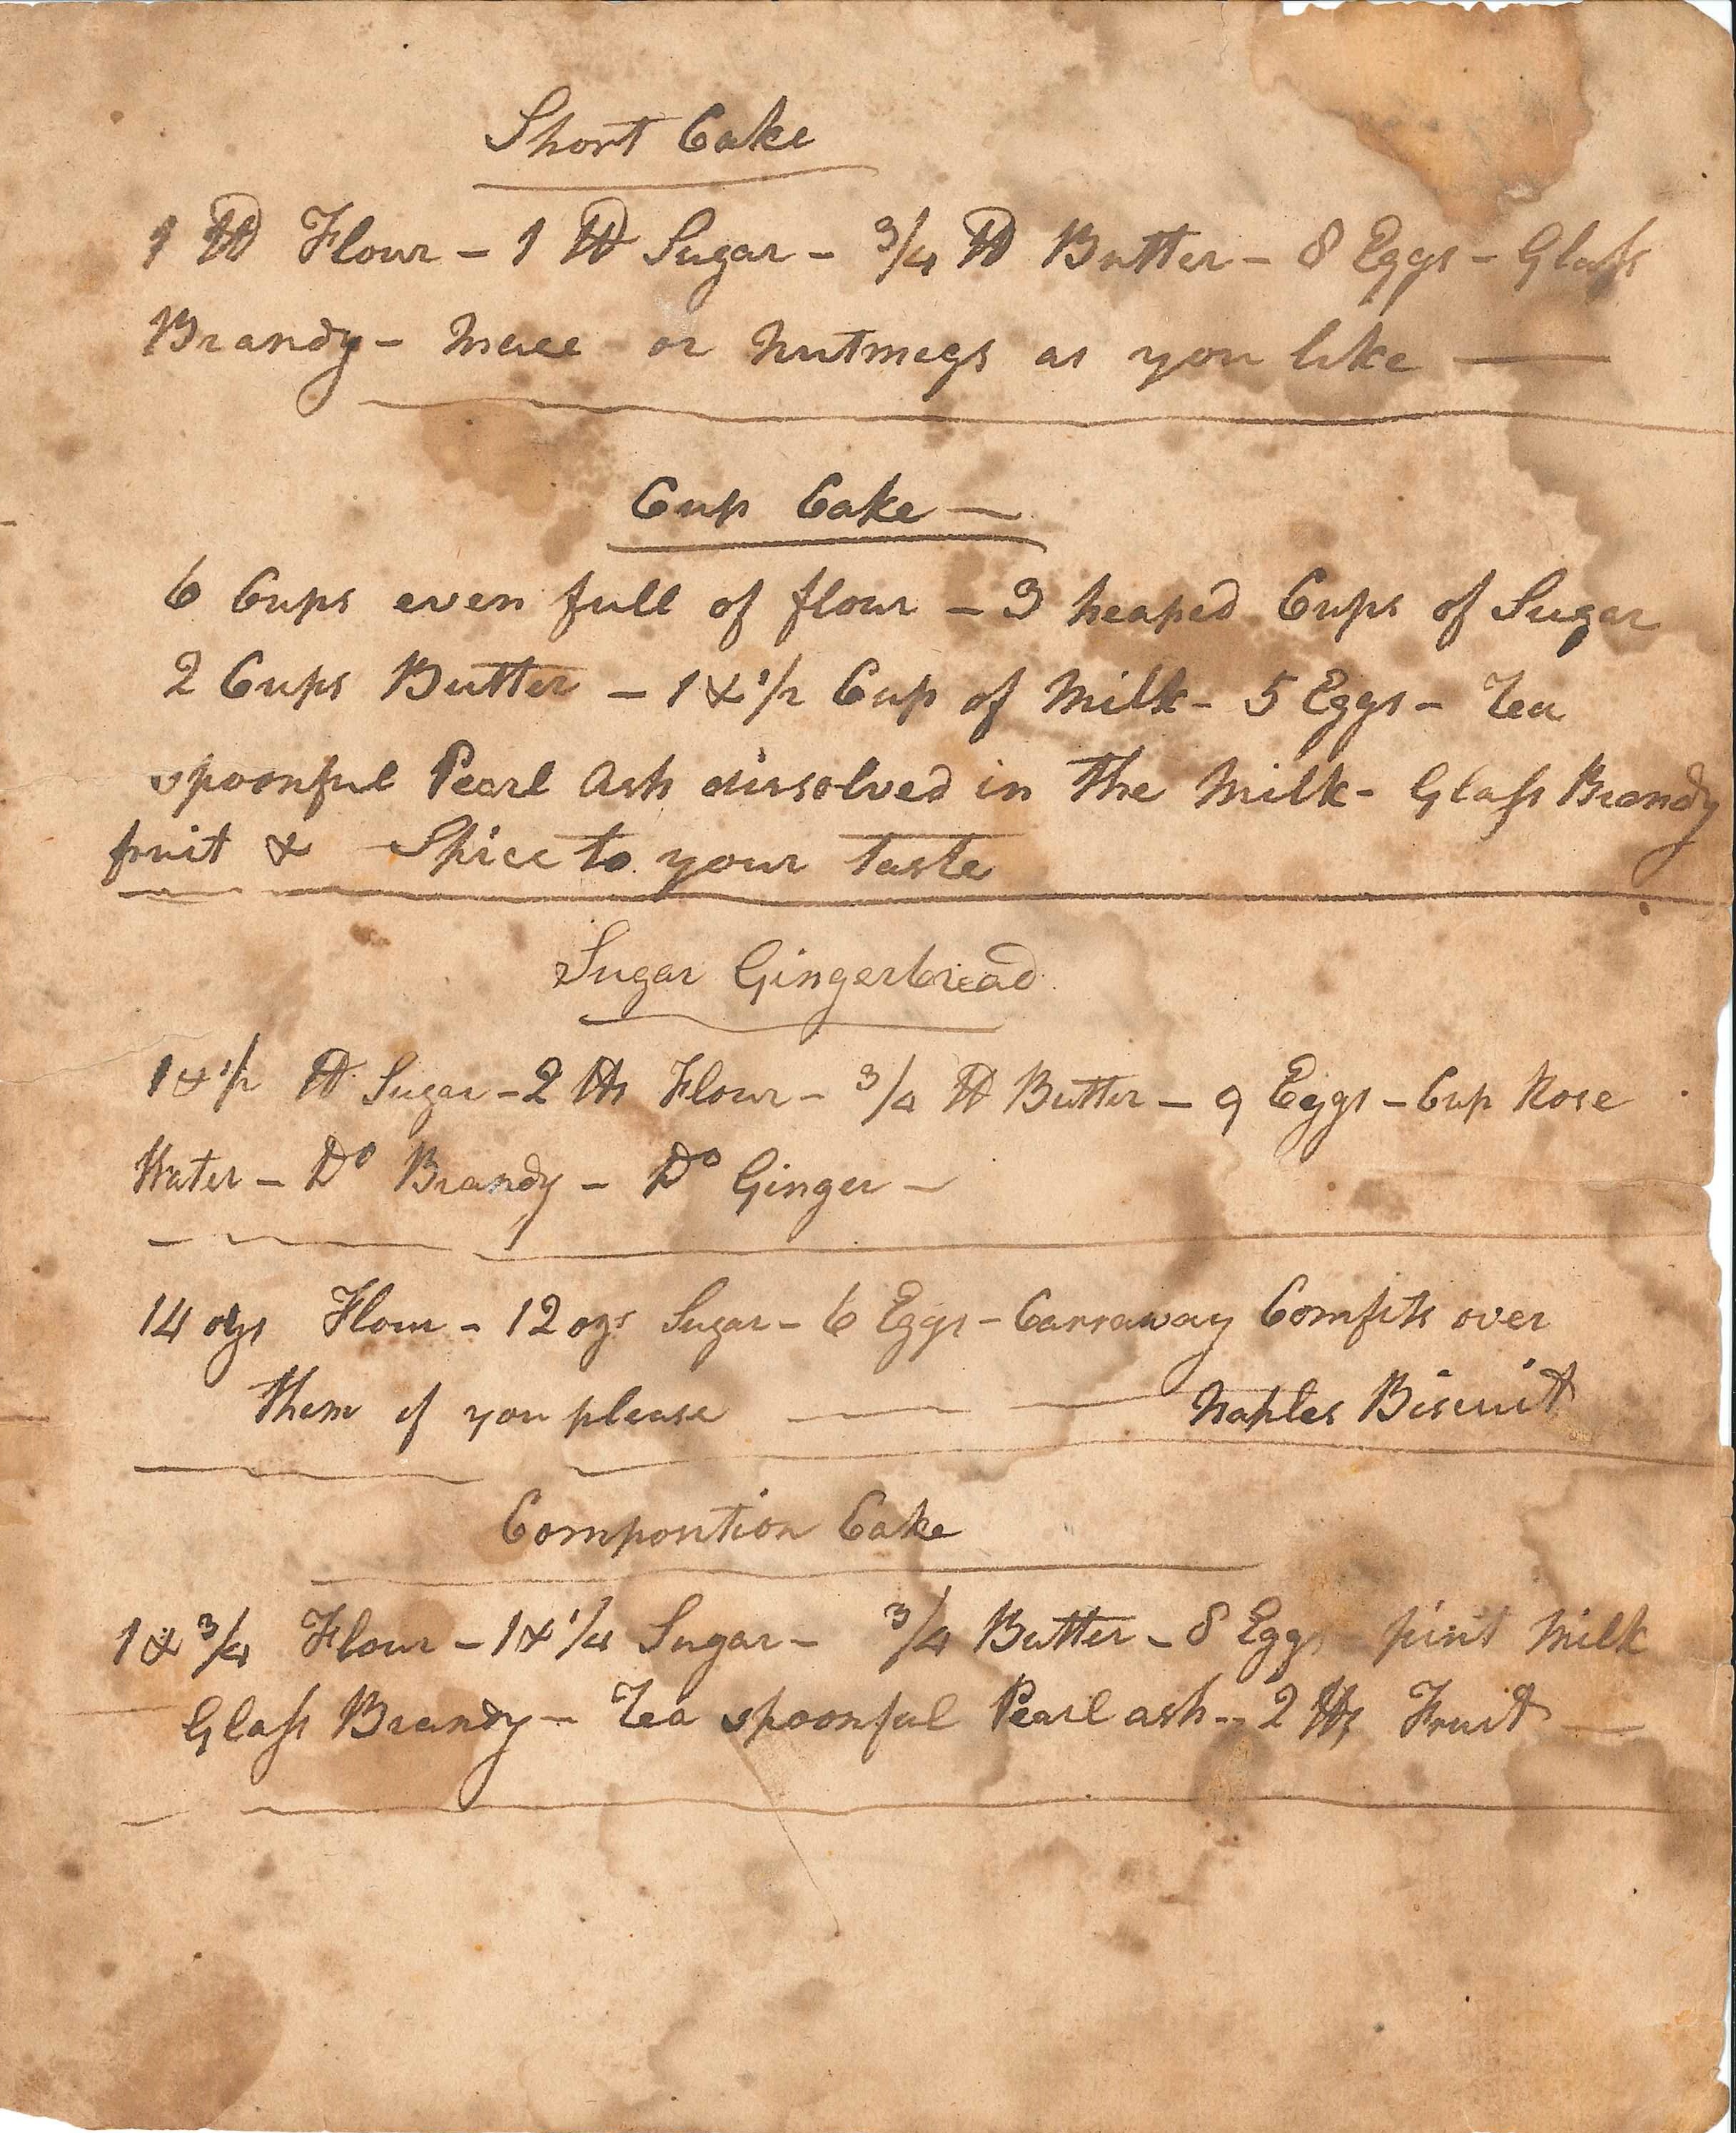 Short Cake
1 ℔ Flour - 1 ℔ Sugar - 3/4 ℔ Butter - 8 Eggs - Glaſs
Brandy - Mace or Nutmegs as you like —
Cup Cake —
6 Cups even full of flour - 3 heaped Cups of Sugar
2 Cups Butter - 1 & 1/2 Cup of Milk - 5 Eggs - Tea
spoonful Pearl Ash dissolved in the Milk - Glaſs Brandy
fruit & Spice to your taste
Sugar Gingerbread
1 & 1/2 ℔ Sugar - 2 ℔s Flour - 3/4 ℔ Butter - 9 Eggs - Cup Rose
Water - Do Brandy - Do Ginger -
14 ozs Flour - 12 ozs Sugar - 6 Eggs - Carraway Comfits over
them if you please — — Naples Biscuit
Composition Cake
1 & 3/4 Flour - 1 & 1/4 Sugar - 3/4 Butter - 8 Eggs - pint Milk
Glaſs Brandy - Tea spoonful Pearl ash - 2 ℔s Fruit —